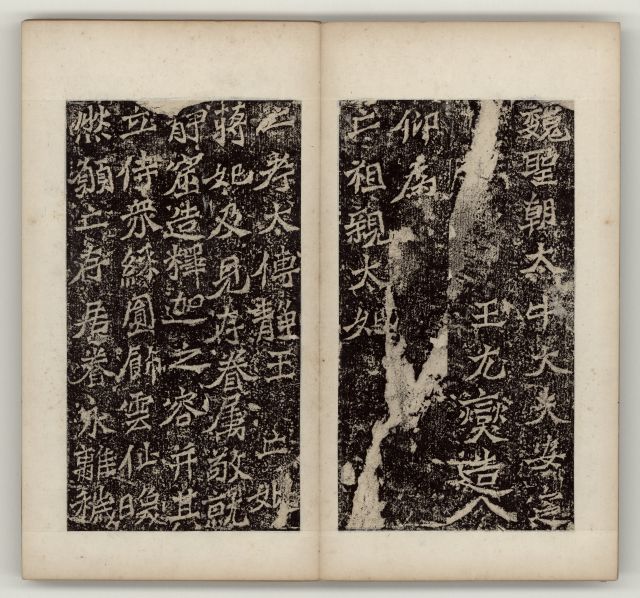 魏聖朝太中大夫安定
王元燮造
仰為
亡祖親太妃
亡考太傅靜王亡妣
蔣妃及見存眷屬敬就
靜窟造釋迦之容并其
立侍眾綵圓飾雲仙映
然願亡存居眷永離穢